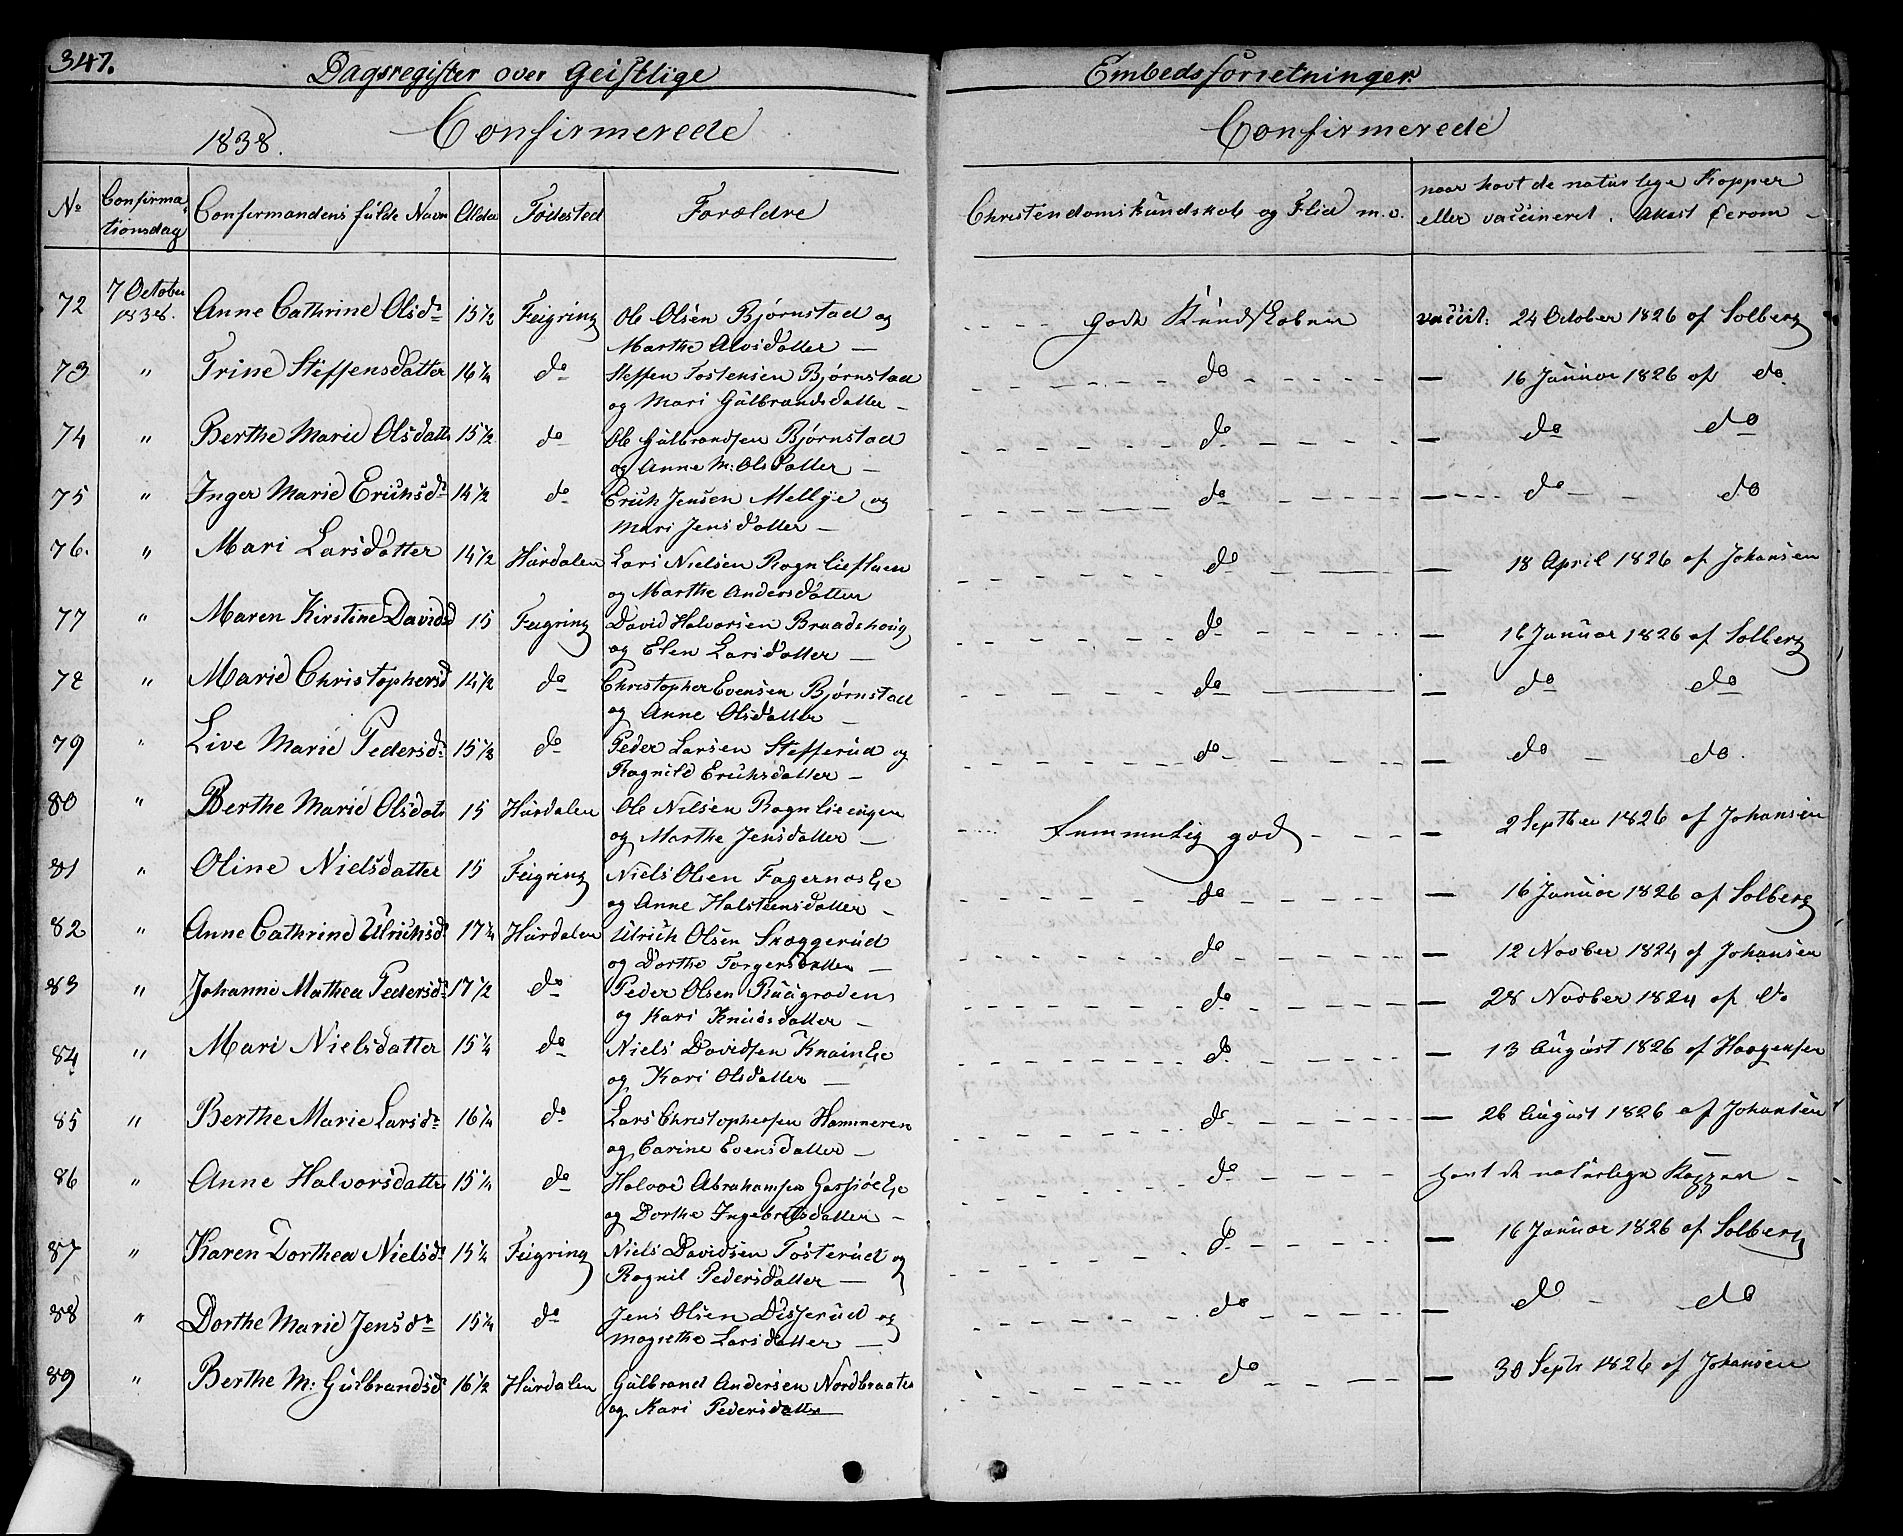 347.
Dagsregister over Geistlige Embedsforretninger.
1838. Confirmerede Confirmerede
No Confirmationsdag Confirmandens fulde Navn Alder Födested Forældre Christendomskundskab og Flid m.v. naar havt de naturlige Kopper
eller vaccineret. Attest derom
72 7 October 1838. Anne Cathrine Olsdr 15½ Feigring Ole Olsen Bjørnstad og gode Kundskaber vaccit: 24 October 1826 af Solberg
Marthe Alvsdatter —
73 " Trine Steffensdatter 16¼ do Steffen Tostensen Bjørnstad do — 16 Januar 1826 af do
og Mari Gulbrandsdatter —
74 " Berthe Marie Olsdatt 15½ do Ole Gulbrandsen Bjørnstad do — do do
og Anne M: Olsdatter —
75 " Inger Marie Erichsdr 14½ do Erich Jensen Mellye og do — do — do
Mari Jensdatter —
76. " Mari Larsdatter 14½ Hurdalen Lars Nielsen Rognlieflaen do — 18 April 1826 af Johansen
og Marthe Andersdatter
77 " Maren Kirstine Davidsd 15 Feigring David Halvorsen Braadshoug do — 16 Januar 1826 af Solberg
og Elen Larsdatter —
78 " Marie Christophersd 14½ do Christopher Evensen Bjørnstad do — do do
og Anne Olsdatter —
79 " Live Marie Pedersdr 15½ do Peder Larsen Stefferud og do — do — do.
Ragnild Erichsdatter —
80 " Berthe Marie Olsdatr 15 Hurdalen Ole Nilsen Rognlieengen temmelig god — 2 Septber 1826 af Johansen
og Marthe Jensdatter —
81 " Oline Nielsdatter 15 Feigring Niels Olsen Fagernæseje do — 16 Januar 1826 af Solberg
og Anne Halsteensdatter —
82 " Anne Cathrine Ulrichsdr 17¼ Hurdalen Ulrich Olsen Skoggerud do — 12 Novber 1824 af Johansen
og Dorthe Torgersdatter —
83 " Johanne Mathea Pedersdr 17½ do Peder Olsen Rustgroden do — 28 Novber 1824 af do
og Kari Knudsdatter —
84 " Mari Nielsdatter 15¼ do Niels Davidsen Knaineje do — 13 August 1826 af Haagensen
og Kari Olsdatter —
85 " Berthe Marie Larsdr 16¼ do Lars Christophersen Hammeren do — 26 August 1826 af Johansen
og Carine Evensdatter —
86 " Anne Halvorsdatter 15¼ do Halvor Abrahamsen Garsjøeje do havt de naturlige Kopper —
og Dorthe Ingebretsdatter —
87 " Karen Dorthea Nielsdr 15¼ Feigring Niels Davidsen Tosterud og do — 16 Januar 1826 af Solberg
Ragnil Pedersdatter —
88 " Dorthe Marie Jensdr 15¼ do Jens Olsen Diserud og do — do — do
Magrethe Larsdatter —
89 " Berthe M: Gulbrandsdr 16½ Hurdalen Gulbrand Andersen Nordbraaten do — 30 Septr 1826 af Johansen
og Kari Pedersdatter —